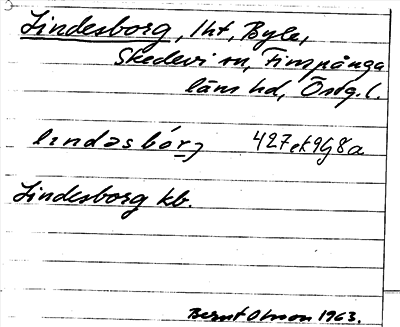 Lindesborg, lht, Byle,
Skedevi sn, Finspånga
läns hd, Östg. l.
lındəsbórj 427 ek 9Gj 8a
Lindesborg kb.
Bernt Olsson 1963.